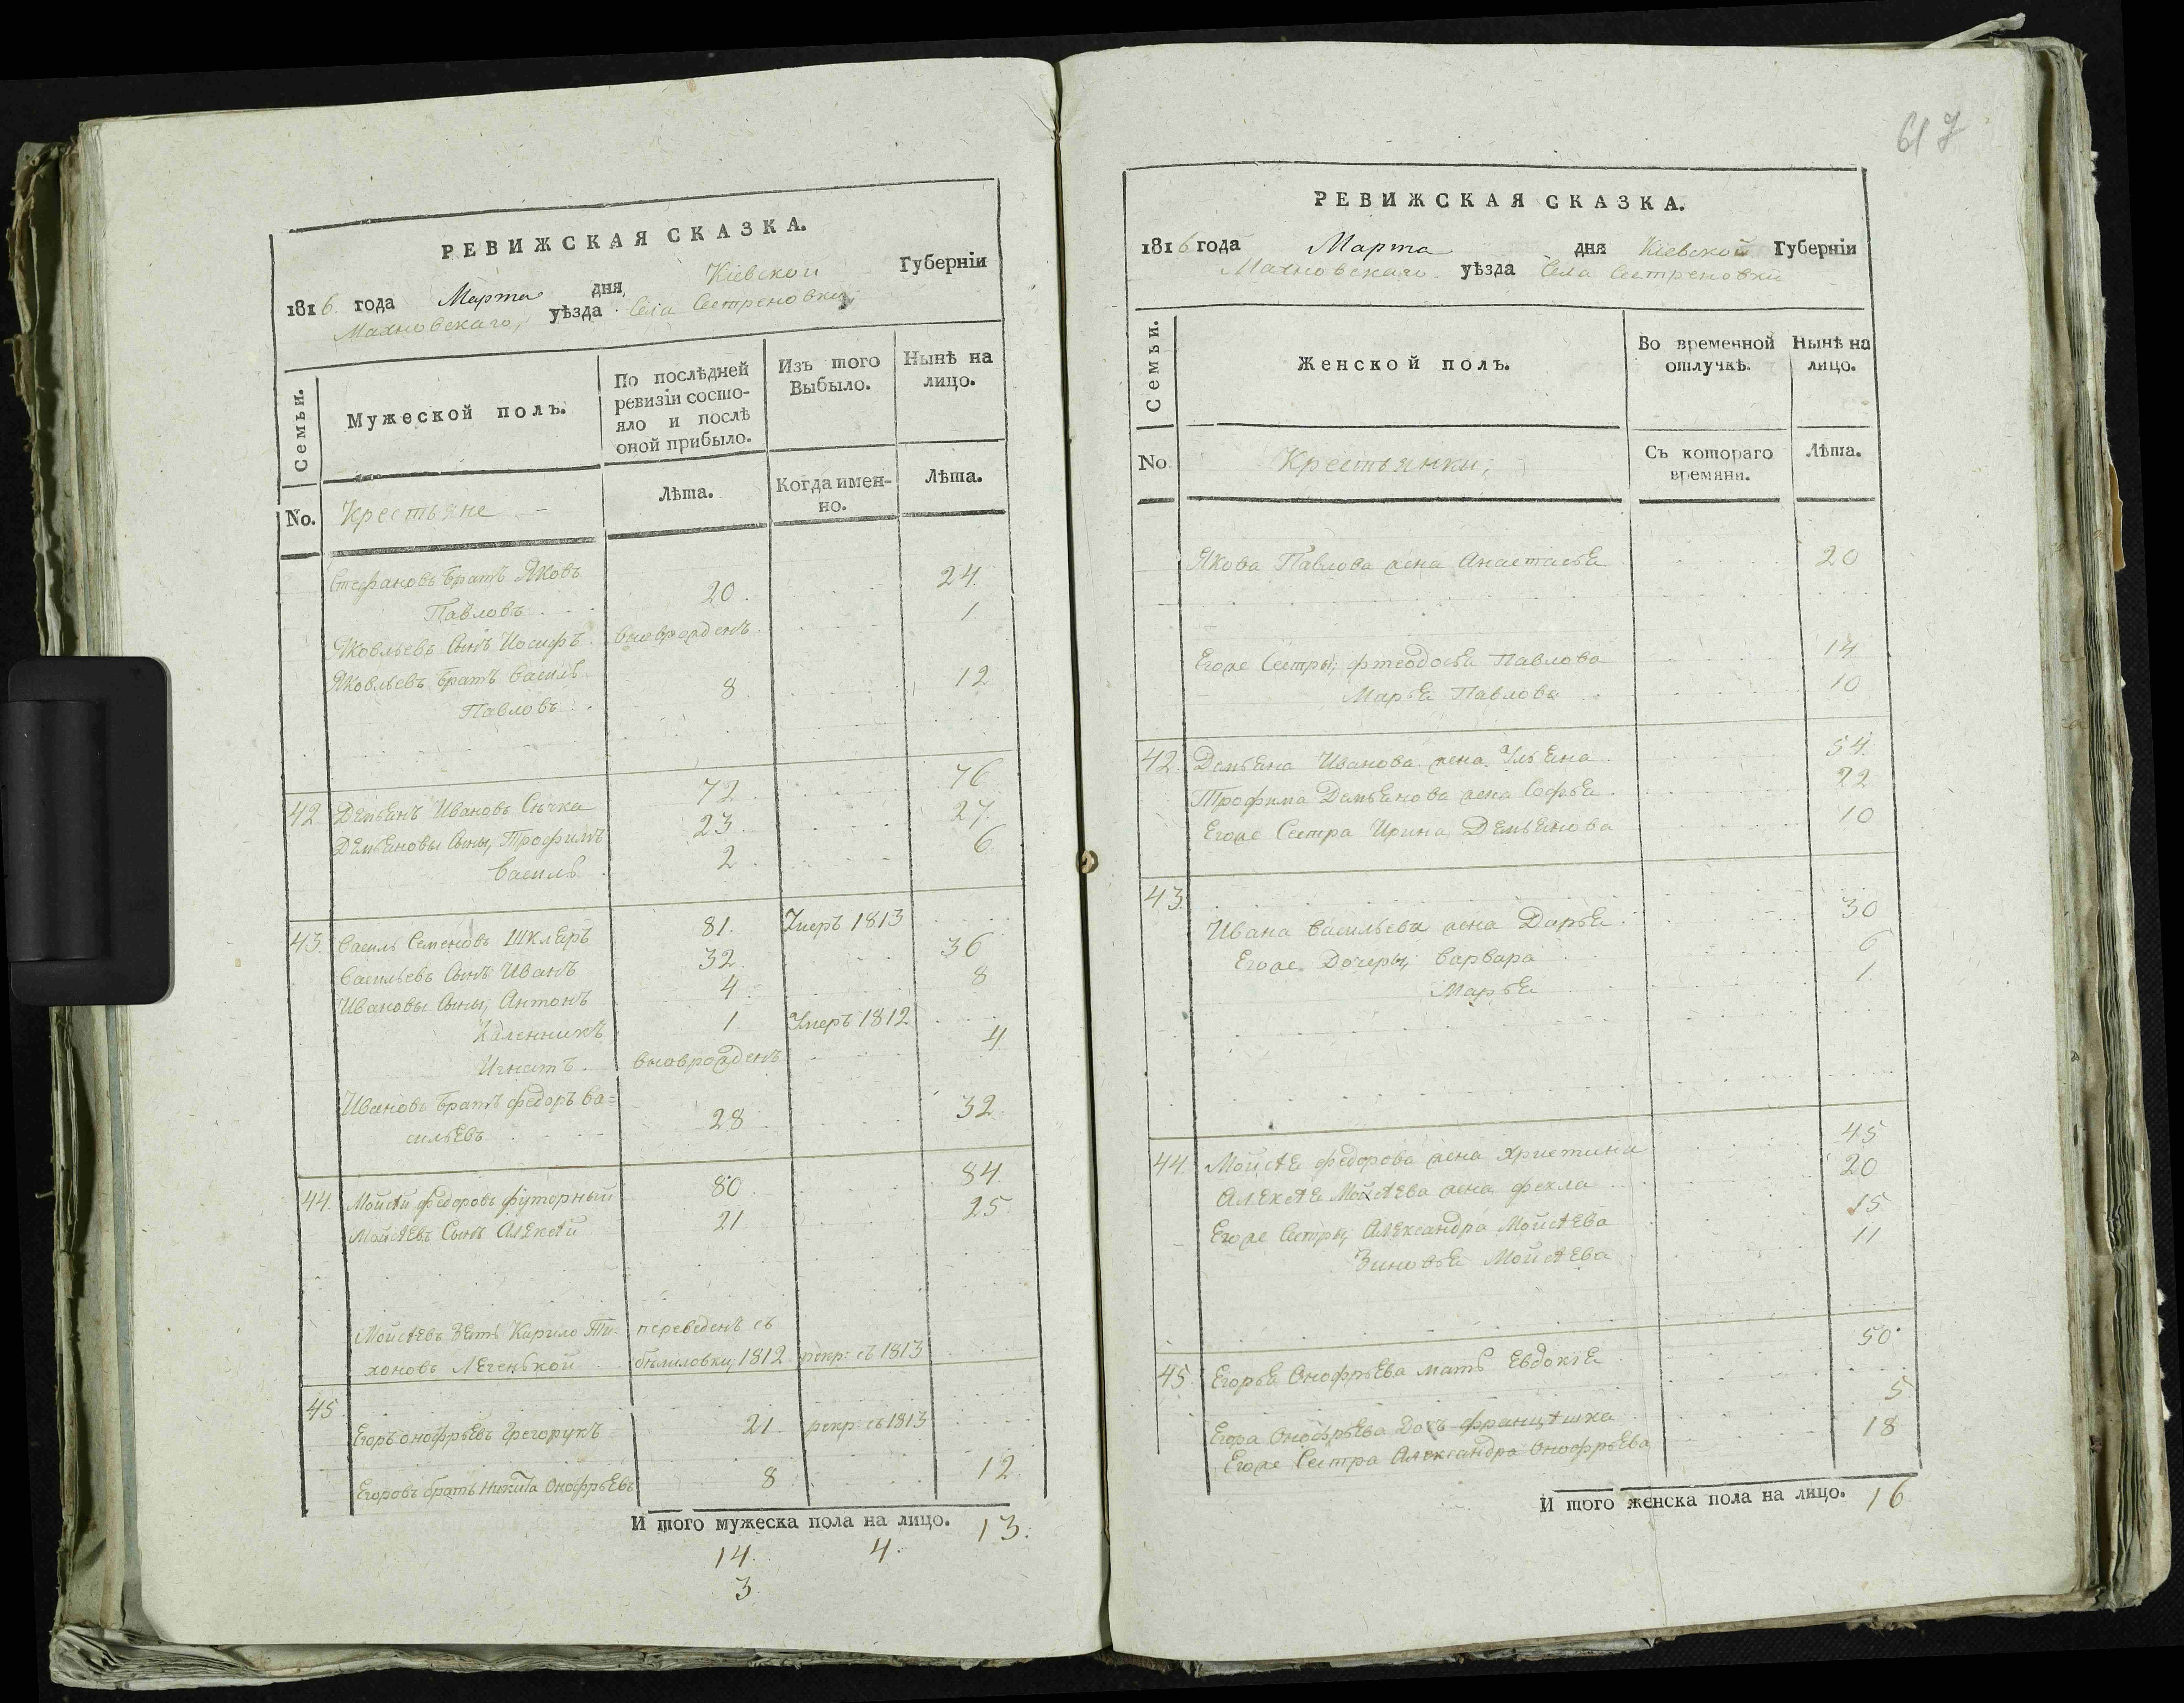 РЕВИЖСКАЯ СКАЗКА.
1816 года Марта дня Кіевской Губерніи
Махновскаго, уѣзда Села Сестреновки,
Семьи.
Мужеской полъ.
По послѣдней ревизіи состо-
яло и послѣ
оной прибыло.
Изъ того
Выбыло.
Нынѣ на
лицо.
No.
Крестьяне
Лѣта.
Когда имен-
но.
Лѣта.
Стефановъ братъ Яковъ
Павловъ 20. 24.
Яковльевъ Сынъ Иосифъ вновърожденъ 1.
Яковльевъ братъ Василь
Павловъ 8 12
42. Демьянъ Ивановъ 72. 76
Демьяновы Сыны, Трофимъ 23. 27.
Василь 2 6
43. Василь Семеновъ Шкляръ 81. Умеръ 1813
Васильевъ Сынъ Иванъ 32. 36
Ивановы Сыны, Антонъ 4. 8
Каленникъ 1. Умеръ 1812
Игнатъ вновърожденъ 4
Ивановъ братъ федоръ Ва=
сильевъ 28 32
44. Мойсѣй федоровъ футорный 80 84
Мойсѣевъ Сынъ Алексѣй 21. 25
Мойсѣевъ Зять Кирило Ти-
хоновъ Легенькой переведенъ съ
бѣлиловки, 1812 рекр: съ 1813
45
Егоръ онофрьевъ Грегорукъ 21 рекр съ 1813
Егоровъ братъ Никита Онофрьевъ 8 12
И того мужеска пола на лицо. 13.
14. 4.
3.
617
РЕВИЖСКАЯ СКАЗКА.
1816 года Марта дня Кіевской Губерніи
Махновскаго уѣзда Села Сестреновки
Семьи.
Женской полъ.
Во временной
отлучкѣ.
Нынѣ на
лицо.
No.
Крестьянки,
Съ котораго
времяни.
Лѣта.
Якова Павлова жена Анастасья 20
Егоже Сестры, фтеодосья Павлова 14
Марья Павлова 10
42. Демьяна Иванова жена Ульяна 54.
Трофима Демьянова жена Софья 22
Егоже Сестра Ирина Демьянова 10
43.
Ивана Васильева жена Дарья 30
Егоже Дочеры, Варвара 6
Марья 1.
44. Мойсѣя федорова жена Христина 45
Алексѣя Мойсѣева жена фекла 20
Егоже Сестры, Александра Мойсѣева 15
Зиновья Мойсѣева 11
45. Егорья Онофрьева мать Евдокія 50
Егора Онофрьева Дочъ францѣшка 5
Егоже Сестра Александра Онофрьева 18
И того женска пола на лицо. 16